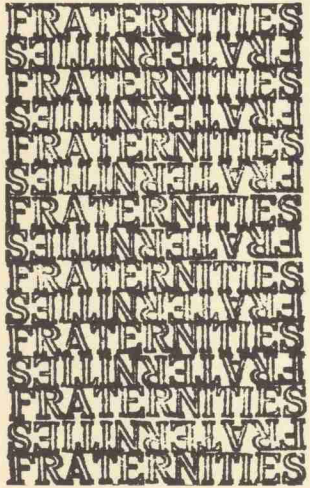 FRATERNITIES
FRATERNITIES
FRATERNITIES
FRATERNITIES
FRATERNITIES
FRATERNITIES
FRATERNITIES
FRATERNITIES
FRATERNITIES
FRATERNITIES
FRATERNITIES
FRATERNITIES
FRATERNITIES
FRATERNITIES
FRATERNITIES